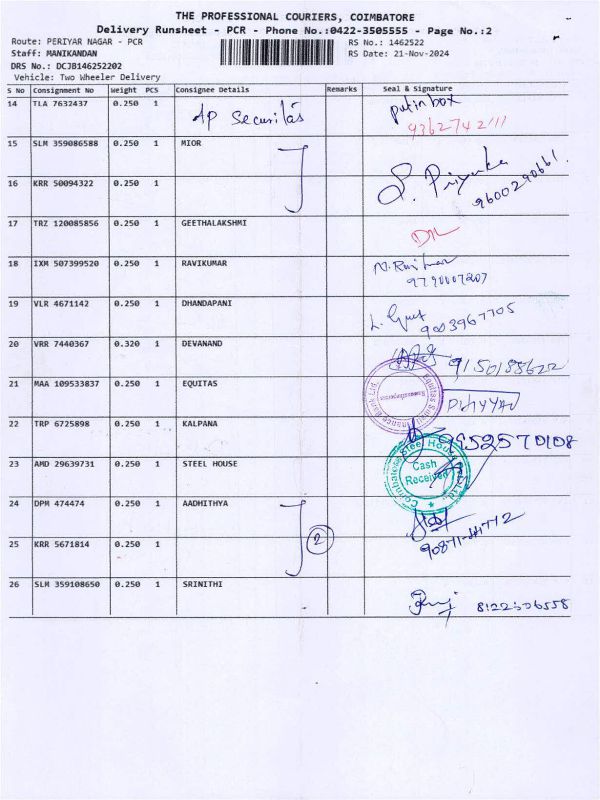 THE PROFESSIONAL COURIERS, COIMBATORE
Delivery Runsheet - PCR - Phone No.:0422-3505555 - Page No.:2
Route: PERIYAR NAGAR - PCR
RS No.: 1462522
Staff: MANIKANDAN
RS Date: 21-Nov-2024
DRS No.: DCJB146252202
Vehicle: Two Wheeler Delivery
S No Consignment No Weight PCS Consignee Details Remarks Seal & Signature
14 TLA 7632437 0.250 1 AP Securitás put in box
15 SLM 359086588 0.250 1 MIOR
16 KRR 50094322 0.250 1 S. Priyanka 9600290661
17 TRZ 120085856 0.250 1 GEETHALAKSHMI
18 IXM 507399520 0.250 1 RAVIKUMAR
19 VLR 4671142 0.250 1 DHANDAPANI 9003967705
20 VRR 7440367 0.320 1 DEVANAND
21 MAA 109533837 0.250 1 EQUITAS
Equitas Small Finance Bank Ltd
22 TRP 6725898 0.250 1 KALPANA 9952570108
23 AMD 29639731 0.250 1 STEEL HOUSE
Coimbatore Steel House
Cash
Received
24 DPM 474474 0.250 1 AADHITHYA
25 KRR 5671814 0.250 1 2
26 SLM 359108650 0.250 1 SRINITHI